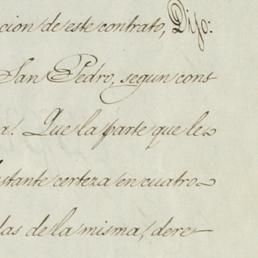 cion de este contrato, Dijo:
San Pedro, segun cons
a: Que la parte que le
stante certeza en cuatro
das de la misma, dere